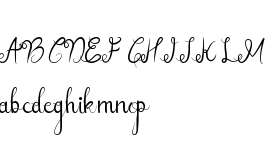 ABCDEF GHIJKLM
abcdeghikmnop